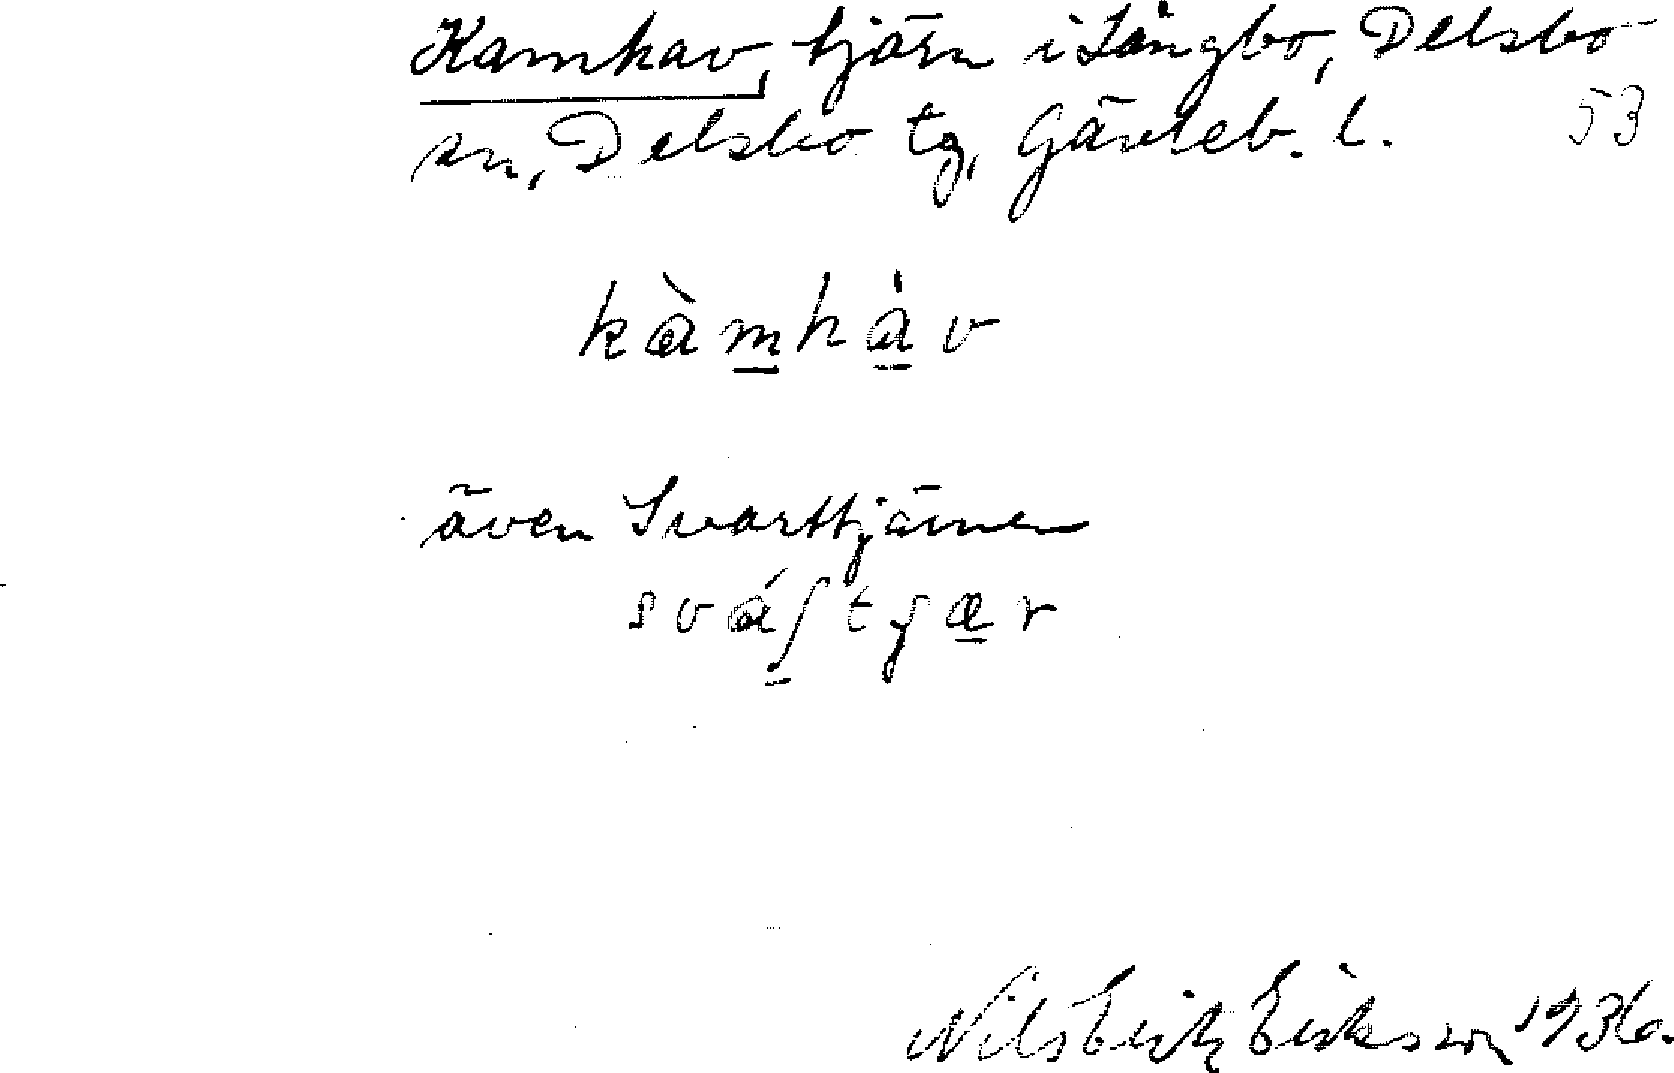 Kamhav, tjärn i Långbo, Delsbo
sn, Delsbo tg, Gävleb. l. 53
kàmhàv
även Svarttjärnen
Nils Erik Eriksson 1936.